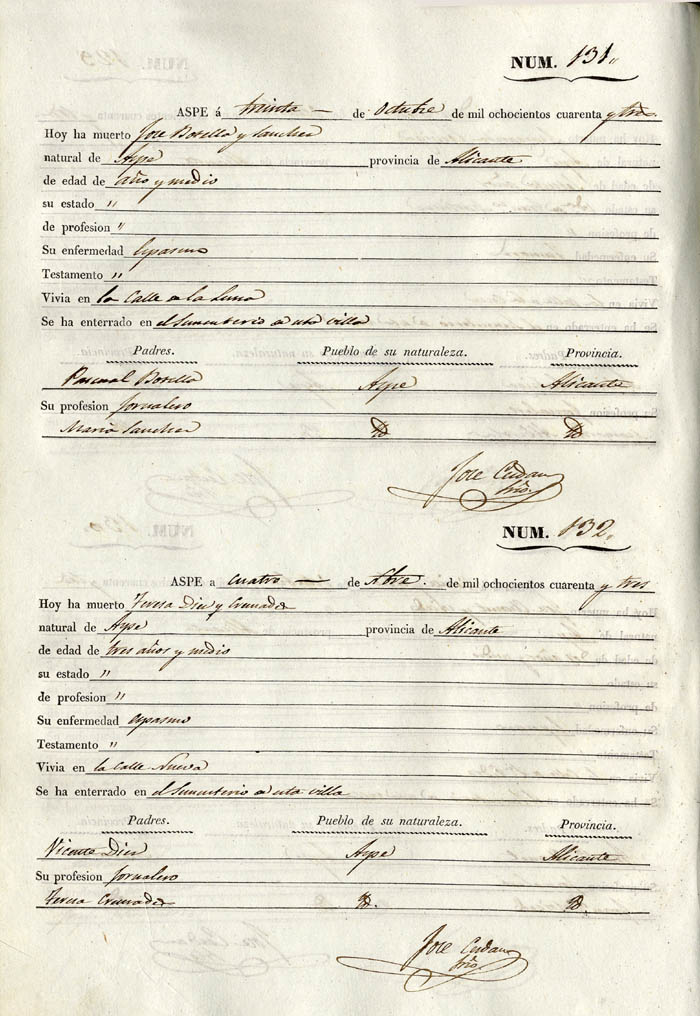 NUM. 131.
ASPE á treinta — de Octubre de mil ochocientos cuarenta y tres
Hoy ha muerto Jose Botella y Sanchez
natural de Aspe provincia de Alicante
de edad de año y medio
su estado "
de profesion "
Su enfermedad Espasmo
Testamento "
Vivia en la Calle de la Luna
Se ha enterrado en el Sementerio de esta villa
Padres. Pueblo de su naturaleza. Provincia.
Pascual Botella Aspe Alicante
Su profesion Jornalero
Maria Sanchez Yd Yd
Jose
NUM. 132.
ASPE a cuatro — de Nbre. de mil ochocientos cuarenta y tres
Hoy ha muerto Teresa Diez y Cremades
natural de Aspe provincia de Alicante
de edad de tres años y medio
su estado "
de profesion "
Su enfermedad espasmo
Testamento "
Vivia en la Calle Nueva
Se ha enterrado en el Sementerio de esta villa
Padres. Pueblo de su naturaleza. Provincia.
Vicente Diez Aspe Alicante
Su profesion Jornalero
Teresa Cremades Yd. Yd.
Jose